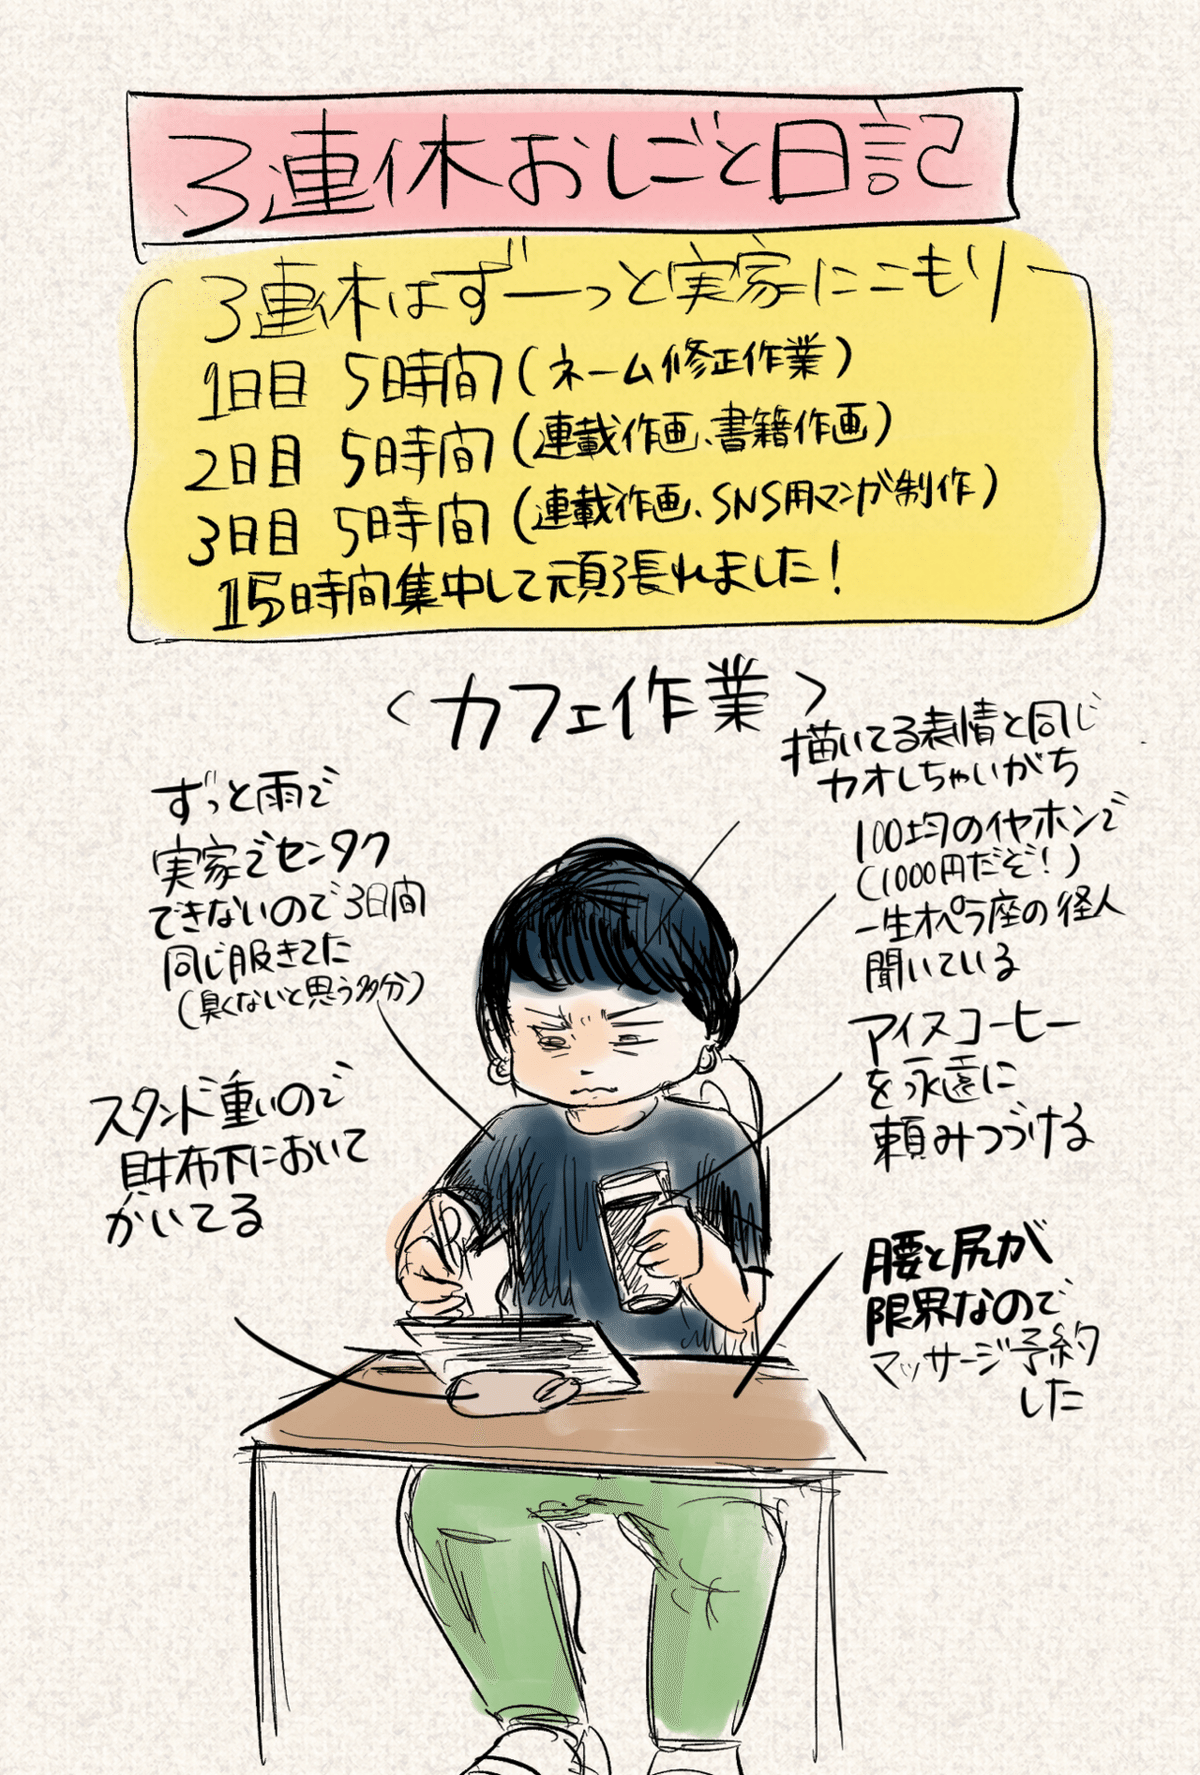 3連休おしごと日記
3連休はずーっと実家にこもり
1日目 5時間(ネーム修正作業)
2日目 5時間(連載作画、書籍作画)
3日目 5時間(連載作画、SNS用マンガ制作)
15時間集中して頑張れました!
<カフェ作業>
描いてる表情と同じ
カオしちゃいがち
ずっと雨で
実家でセンタク
できないので3日間
同じ服きてた
(臭くないと思う多分)
100均のイヤホンで
(1000円だぞ!)
一生オペラ座の怪人
聞いている
アイスコーヒー
を永遠に
頼みつづける
スタンド重いので
財布下において
かいてる
腰と尻が
限界なので
マッサージ予約
した